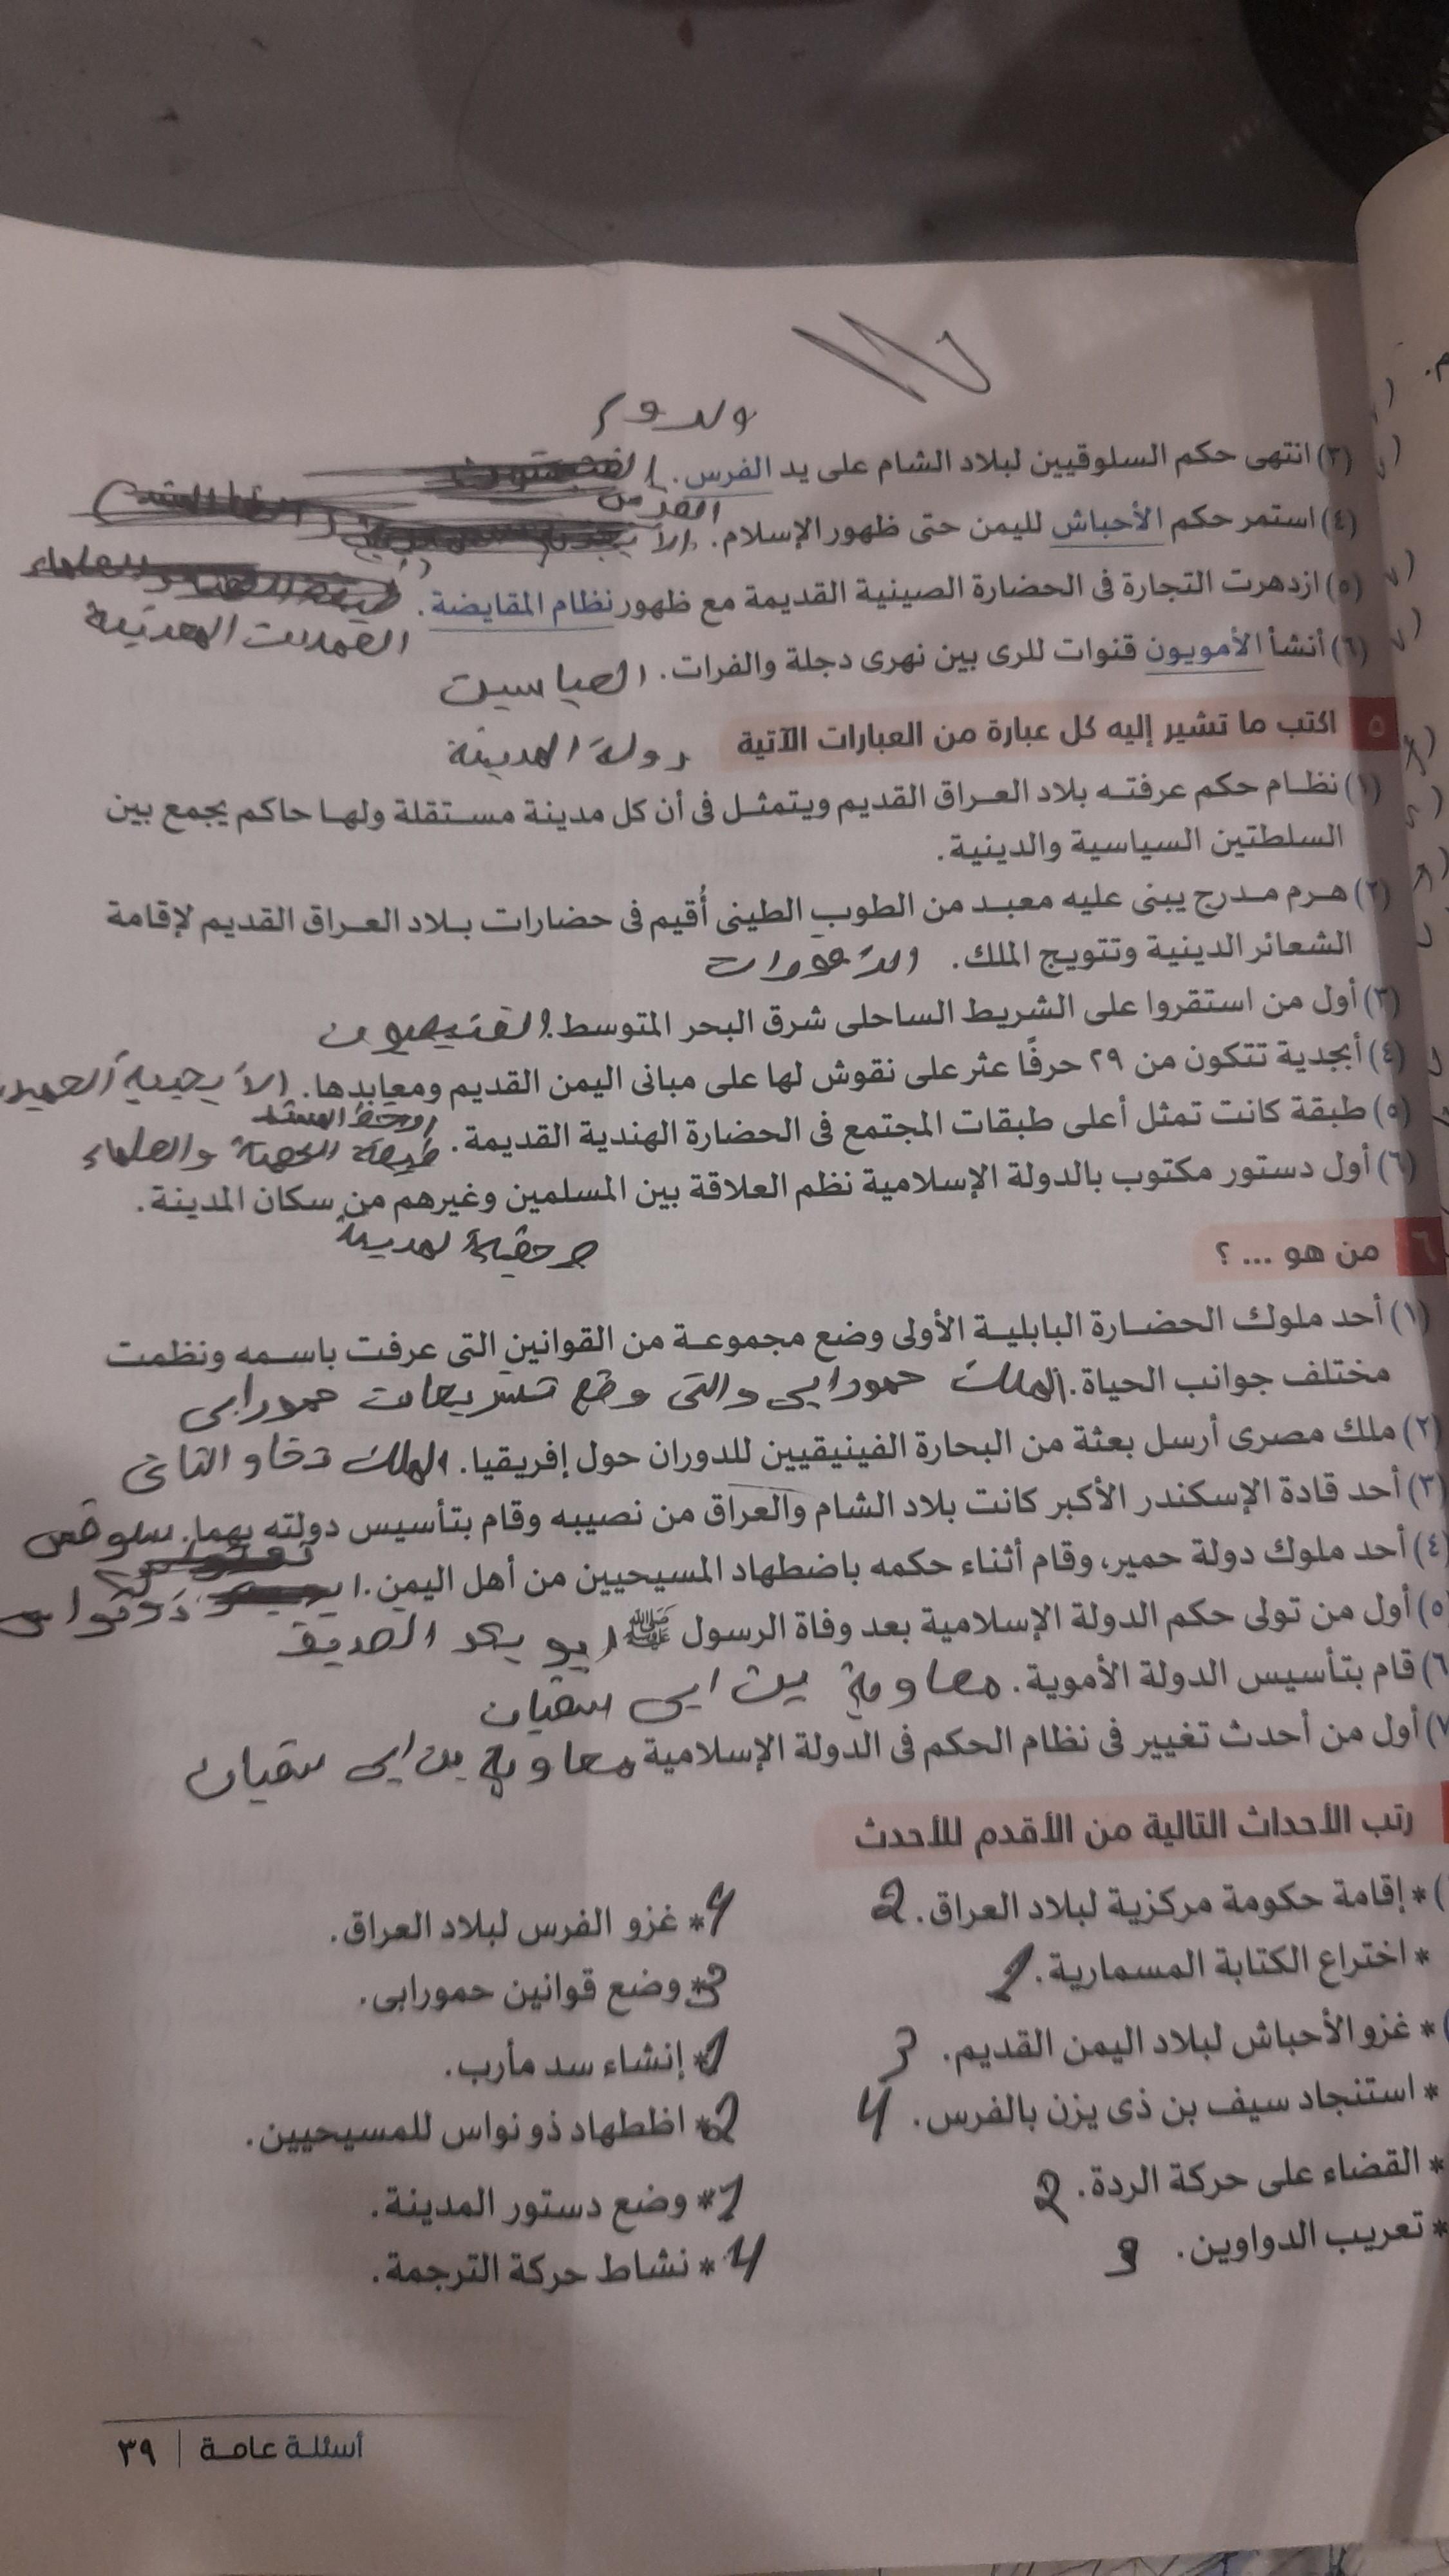 وروم
(٣) انتهى حكم السلوقيين لبلاد الشام على يد الفرس.
الفرس
(٤) استمر حكم الأحباش لليمن حتى ظهور الإسلام.
(٥) ازدهرت التجارة فى الحضارة الصينية القديمة مع ظهور نظام المقايضة.
العملات المعدنية
(٦) أنشأ الأمويون قنوات للرى بين نهرى دجلة والفرات. العباسين
٥ اكتب ما تشير إليه كل عبارة من العبارات الآتية
دولة المدينة
(١) نظام حكم عرفته بلاد العراق القديم ويتمثل فى أن كل مدينة مستقلة ولها حاكم يجمع بين
السلطتين السياسية والدينية.
(٢) هرم مدرج يبنى عليه معبد من الطوب الطينى أُقيم فى حضارات بلاد العراق القديم لإقامة
الشعائر الدينية وتتويج الملك.
(٣) أول من استقروا على الشريط الساحلى شرق البحر المتوسط.
(٤) أبجدية تتكون من ٢٩ حرفًا عثر على نقوش لها على مبانى اليمن القديم ومعابدها.
او خط المسند
(٥) طبقة كانت تمثل أعلى طبقات المجتمع فى الحضارة الهندية القديمة. طبقة الكهنة والعلماء
(٦) أول دستور مكتوب بالدولة الإسلامية نظم العلاقة بين المسلمين وغيرهم من سكان المدينة.
٦ من هو ... ؟
(١) أحد ملوك الحضارة البابلية الأولى وضع مجموعة من القوانين التى عرفت باسمه ونظمت
مختلف جوانب الحياة. الملك حمورابى والتى وضع تشريعات حمورابى
(٢) ملك مصرى أرسل بعثة من البحارة الفينيقيين للدوران حول إفريقيا. الملك نخاو الثانى
(٣) أحد قادة الإسكندر الأكبر كانت بلاد الشام والعراق من نصيبه وقام بتأسيس دولته بهما.
(٤) أحد ملوك دولة حمير، وقام أثناء حكمه باضطهاد المسيحيين من أهل اليمن. ذو نواس
(٥) أول من تولى حكم الدولة الإسلامية بعد وفاة الرسول ﷺ ابو بكر الصديق
(٦) قام بتأسيس الدولة الأموية. معاوية بن ابى سفيان
(٧) أول من أحدث تغيير فى نظام الحكم فى الدولة الإسلامية معاوية بن ابى سفيان
رتب الأحداث التالية من الأقدم للأحدث
* إقامة حكومة مركزية لبلاد العراق. 2
4 * غزو الفرس لبلاد العراق.
* اختراع الكتابة المسمارية. 1
3 * وضع قوانين حمورابى.
* غزو الأحباش لبلاد اليمن القديم. 3
1 * إنشاء سد مأرب.
* استنجاد سيف بن ذى يزن بالفرس. 4
2 * اظطهاد ذو نواس للمسيحيين.
* القضاء على حركة الردة. 2
1 * وضع دستور المدينة.
* تعريب الدواوين. 3
4 * نشاط حركة الترجمة.
أسئلة عامة | ٣٩